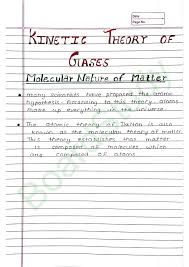 Date
Page No.
KINETIC THEORY OF
GASES
Molecular Nature of Matter
• Many scientists have proposed the atomic
hypothesis. According to this theory, atoms
make up everything in the universe.
• The atomic theory of Dalton is also
known as the molecular theory of matter.
This theory establishes that matter
is composed of molecules which
are composed of atoms